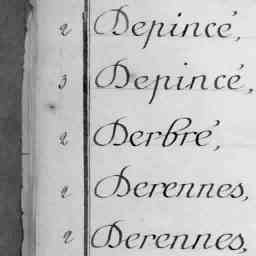 2 Depincé,
3 Depincé,
2 Derbré,
2 Derennes,
2 Derennes,